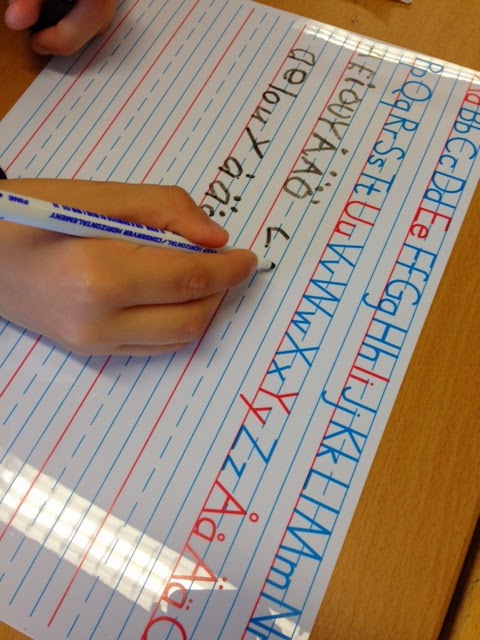 a Bb Cc Dd Ee Ff Gg Hh Ii Jj Kk Ll Mm N
Pp Qq Rr Ss Tt Uu Vv Ww Xx Yy Zz Åå Ää Ö
E I O U Y Å Ä Ö L
a e i o u y å ä
KEEP HORIZONTAL/CONSERVER HORIZONTALEMENT FINE